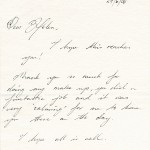 Dear
I hope this reaches
you!
Thank you so much for
doing my make up, you did a
fantastic job and it was
very calming for me to have
you there on the day
I hope all is well